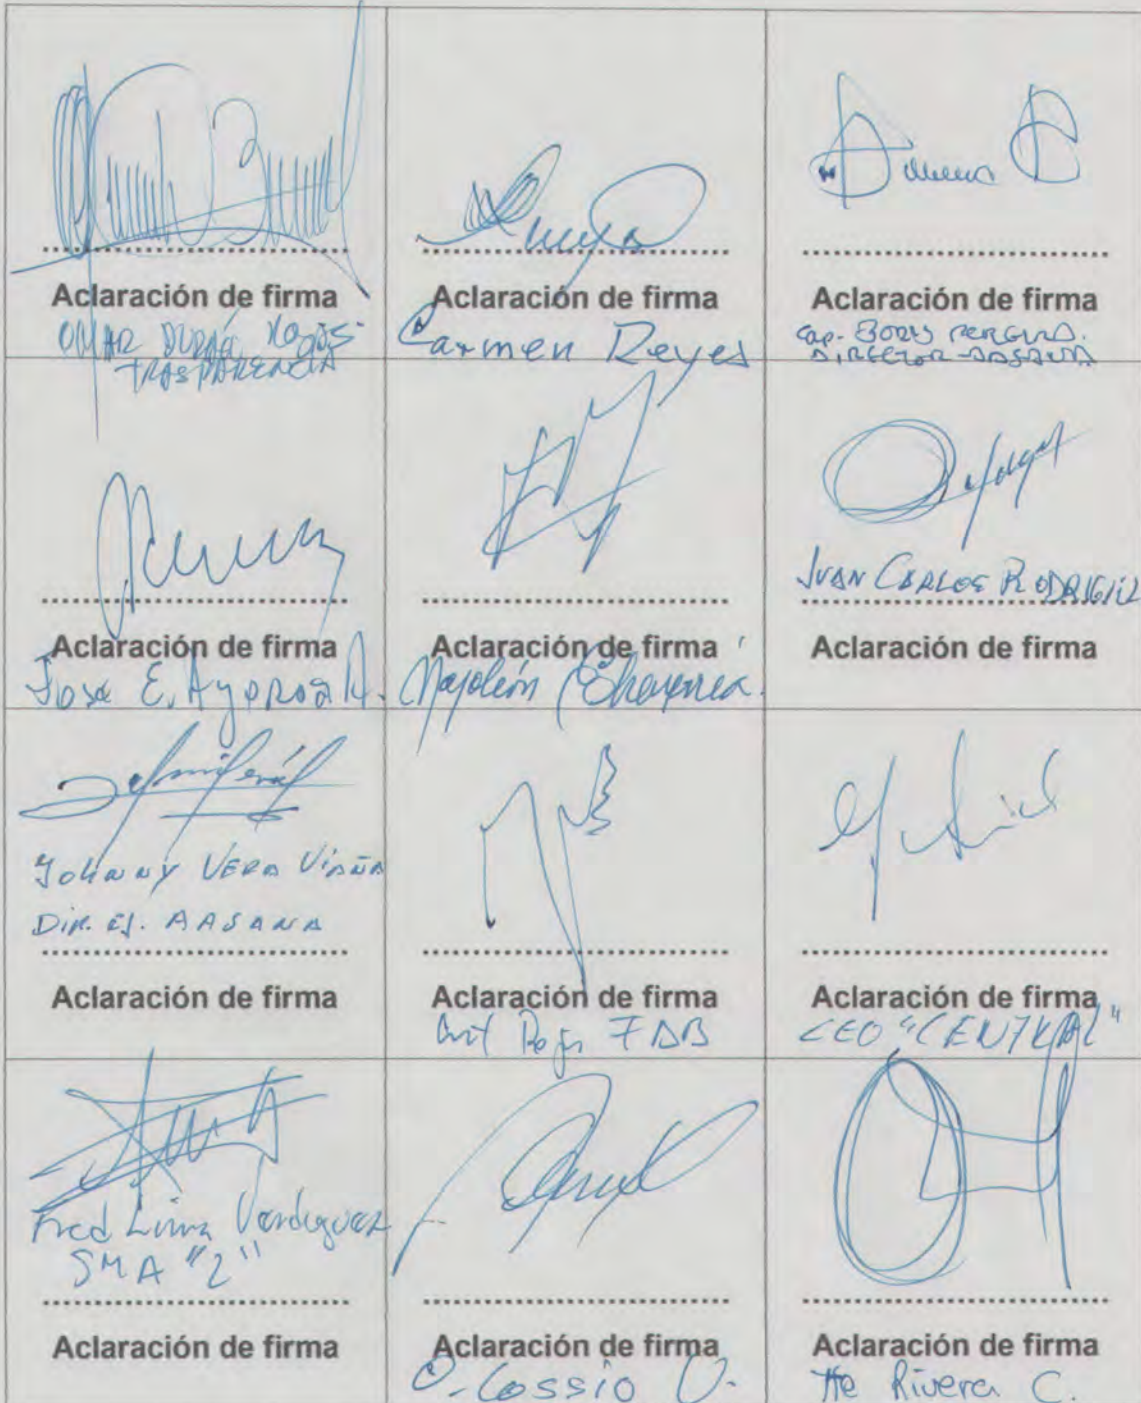 Aclaración de firma
OMAR DURÁN
TRASPARENCIA
Aclaración de firma
Carmen Reyes
Aclaración de firma
Cap. BORIS
DIRECTOR-AASANA
Aclaración de firma
José E. A.
Aclaración de firma
Napoleón Echaverría.
JUAN CARLOS RODRIGUEZ
Aclaración de firma
Johnny VERA ViAÑA
DiR. EJ. AASANA
Aclaración de firma
Aclaración de firma
FAB
Aclaración de firma
CEO "CENTRAL"
Fred Lima
SMA "2"
Aclaración de firma
Aclaración de firma
O. Cossio V.
Aclaración de firma
Tte Rivera C.